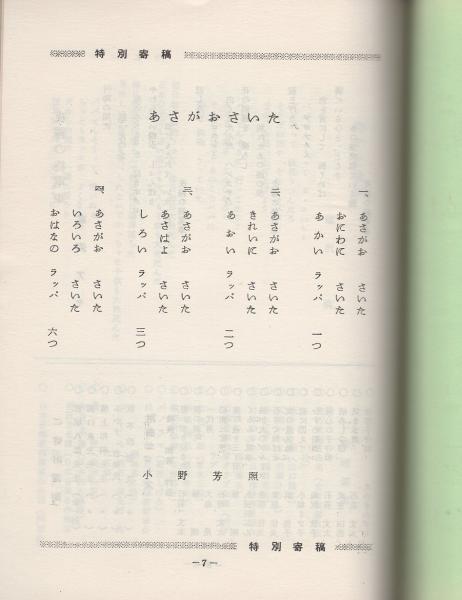 特別寄稿
あさがおさいた
一、あさがお さいた
おにわに さいた
あかい ラッパ 一つ
二、あさがお さいた
きれいに さいた
あおい ラッパ 二つ
三、あさがお さいた
あさはよ さいた
しろい ラッパ 三つ
四、あさがお さいた
いろいろ さいた
おはなの ラッパ 六つ
小野芳照
特別寄稿
—7—